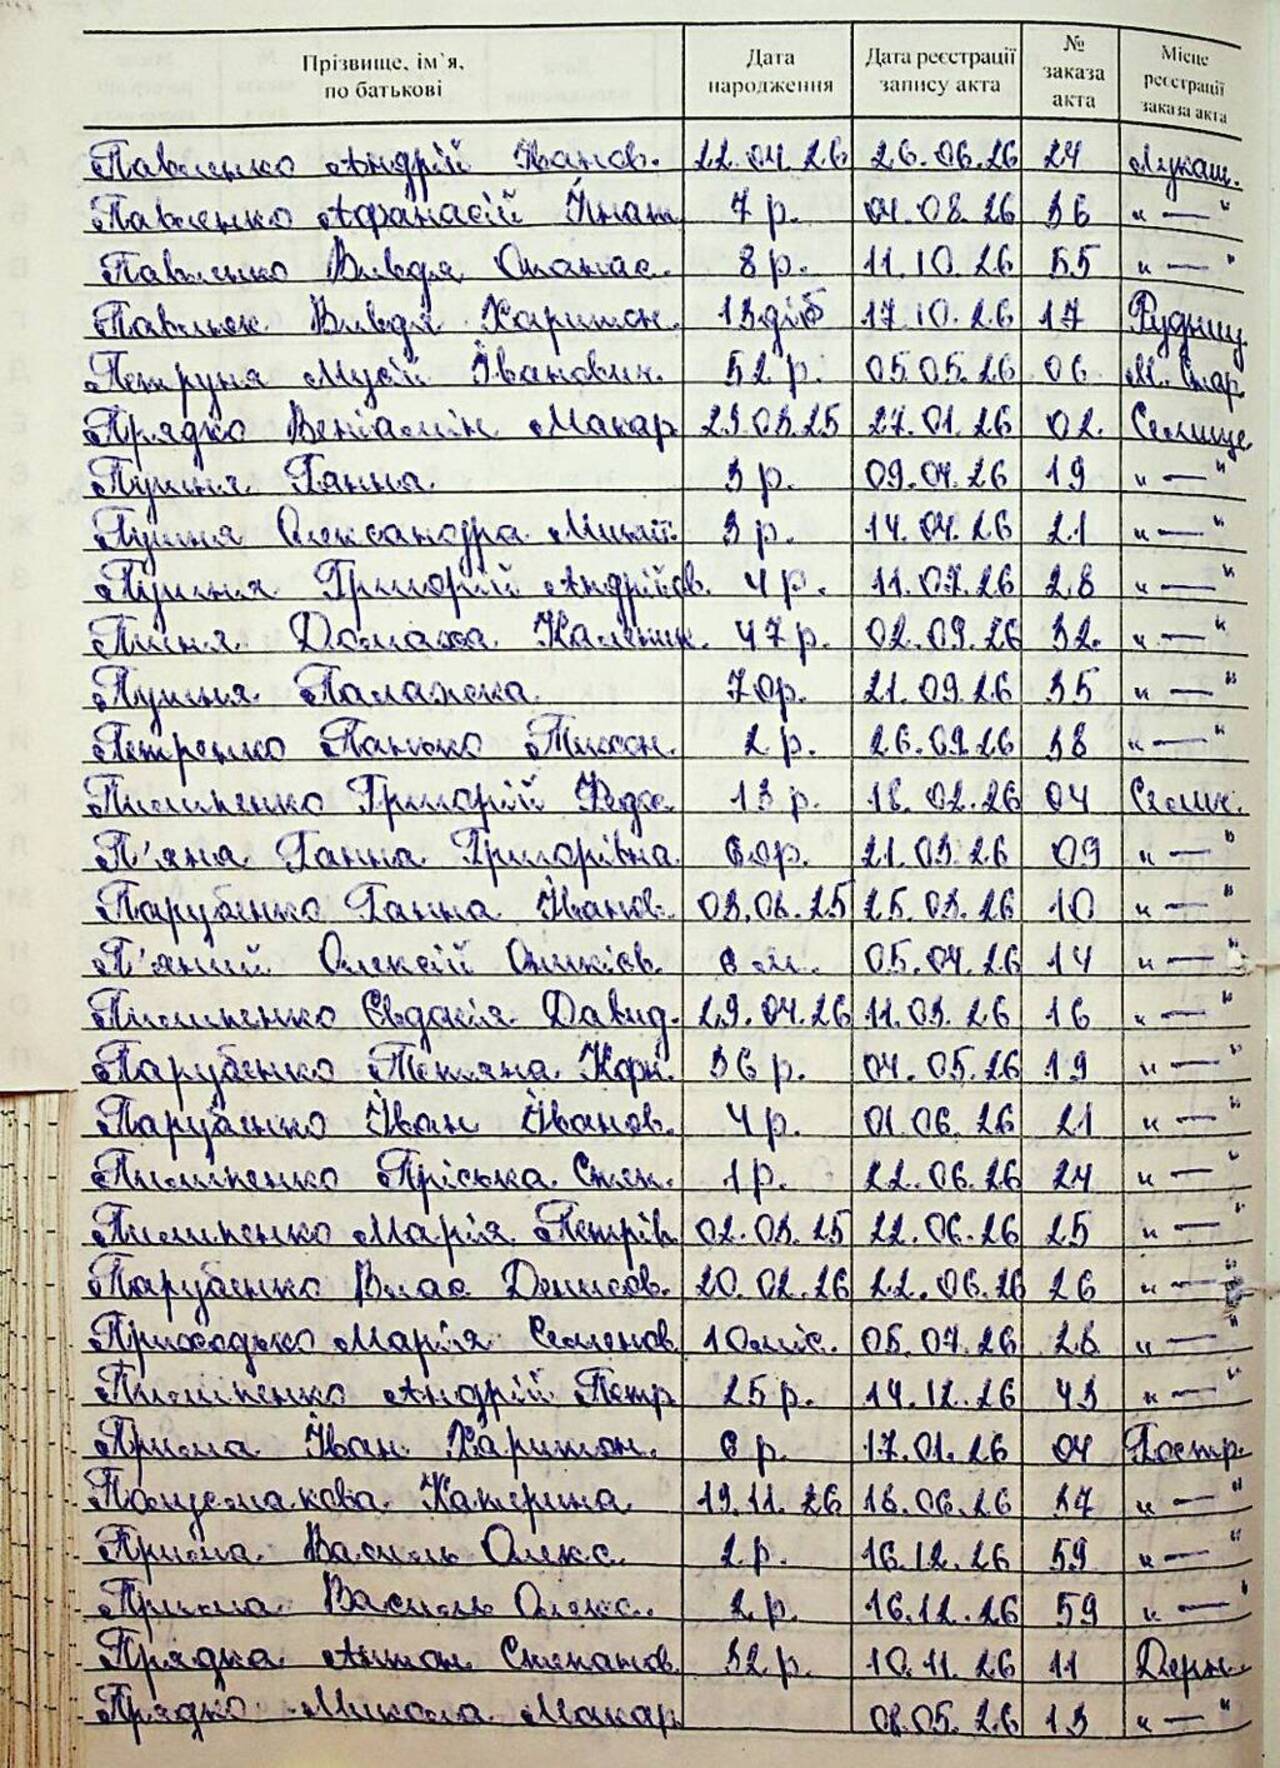 Прізвище, ім`я, по батькові Дата народження Дата реєстрації запису акта № заказа акта Місце реєстрації заказа акта
Павленко Андрій Іванов. 22.04.26 26.06.26 24 Лукаш.
Павленко Афанасій Ігнат. 7 р. 04.08.26 36 "—"
Павленко Вивдя Опанас. 8 р. 11.10.26 55 "—"
Павленк. Вивдя Харитон. 13 діб 17.10.26 17 Рудниц.
Петруня Мусій Іванович. 52 р. 05.05.26 06 М. Стар.
Прядко Веніамін Макар 23.03.25 27.01.26 02. Селище
Пушня Ганна 3 р. 09.04.26 19 "—"
Пушня Олександра 3 р. 14.04.26 21 "—"
Пушня Григорій Андрійов. 4 р. 11.07.26 28 "—"
Домаха Каленик. 47 р. 02.09.26 32. "—"
Пушня Палажка 70 р. 21.09.26 35 "—"
Петренко Панько Тихон. 2 р. 26.09.26 38 "—"
Пилипенко Григорій Федос. 13 р. 18.02.26 04 Селищ.
П'яна Ганна Григорівна 60 р. 21.03.26 09 "—"
Парубенко Ганна Іванов. 03.06.25 25.03.26 10 "—"
П'яний Олексій Оникієв. 6 м. 05.04.26 14 "—"
Пилипенко Євдокія Давид. 29.04.26 11.03.26 16 "—"
Парубенко Тетяна 36 р. 04.05.26 19 "—"
Парубенко Іван Іванов. 4 р. 01.06.26 21 "—"
Пилипенко Пріська Степ. 1 р. 22.06.26 24 "—"
Пилипенко Марія Петрів. 02.03.25 22.06.26 25 "—"
Парубенко Влас Денисов. 20.02.26 22.06.26 26 "—"
Приходько Марія Семенов 10 міс. 05.07.26 28 "—"
Пилипенко Андрій Петр 25 р. 14.12.26 43 "—"
Прийма Іван Харитон. 6 р. 17.01.26 04 Гостр.
Катерина 19.11.26 18.06.26 37 "—"
Прийма Василь Олекс. 2 р. 16.12.26 59 "—"
Прийма Василь Олекс. 2 р. 16.12.26 59 "—"
Прядка Антон Степанов. 32 р. 10.11.26 11 Дерн.
Прядко Микола Макар 08.05.26 13 "—"